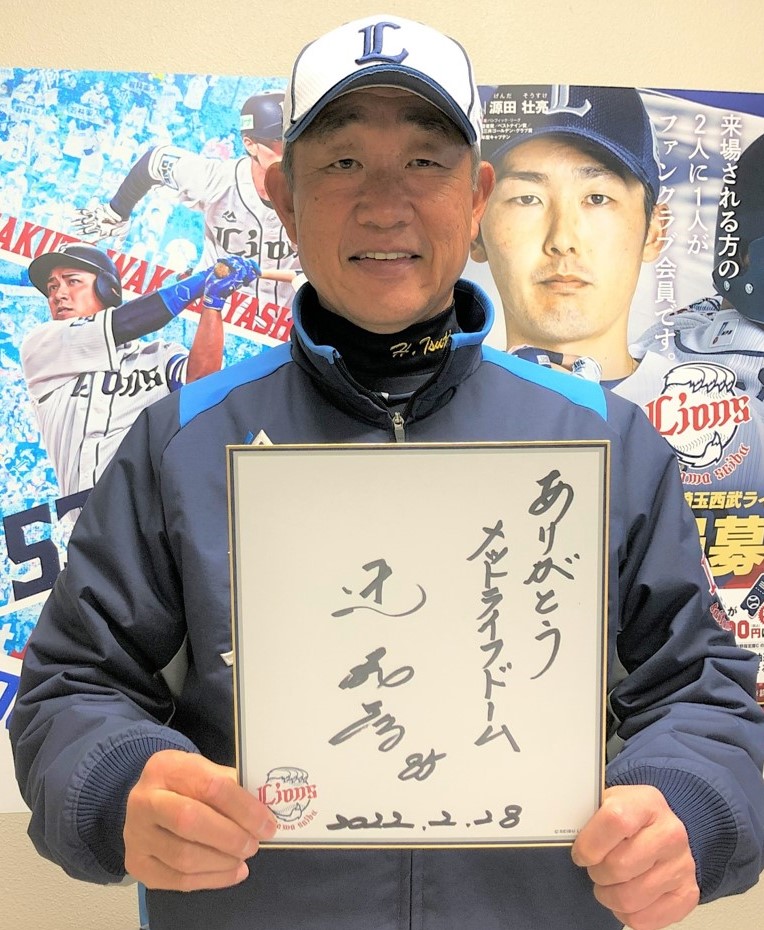 L
げんだ そうすけ
源田 壮亮
来場される方の
2人に1人が
ファンクラブ会員です。
Lions
WAKABAYASHI
Lions
H. Tsuji
Lions
埼玉西武ライ
募
53
ありがとう
メットライフドーム
辻 発彦
85
Lions
2022.2.28